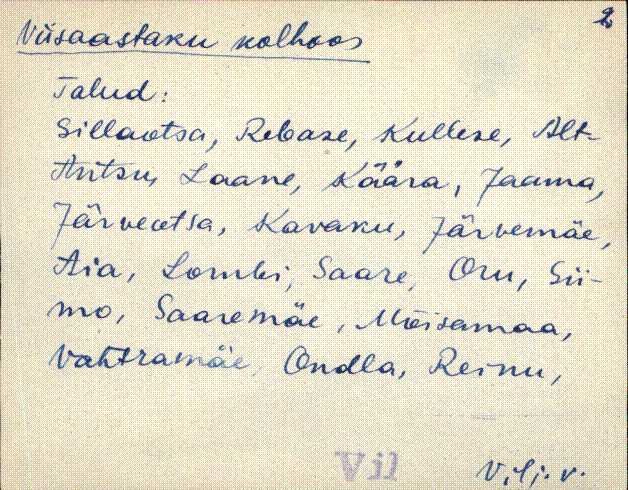 2
Viisaastaku kolhoos
Talud:
Sillaotsa, Rebase, Kullese, Alt-
Antsu, Laane, Käära, Jaama,
Järveotsa, Kavaku, Järvemäe,
Aia, Lombi, Saare, Oru, Sii-
mo, Saaremäe, Mõisamaa,
Vahtramäe, Ondla, Reinu,
Vil
Vilj. v.